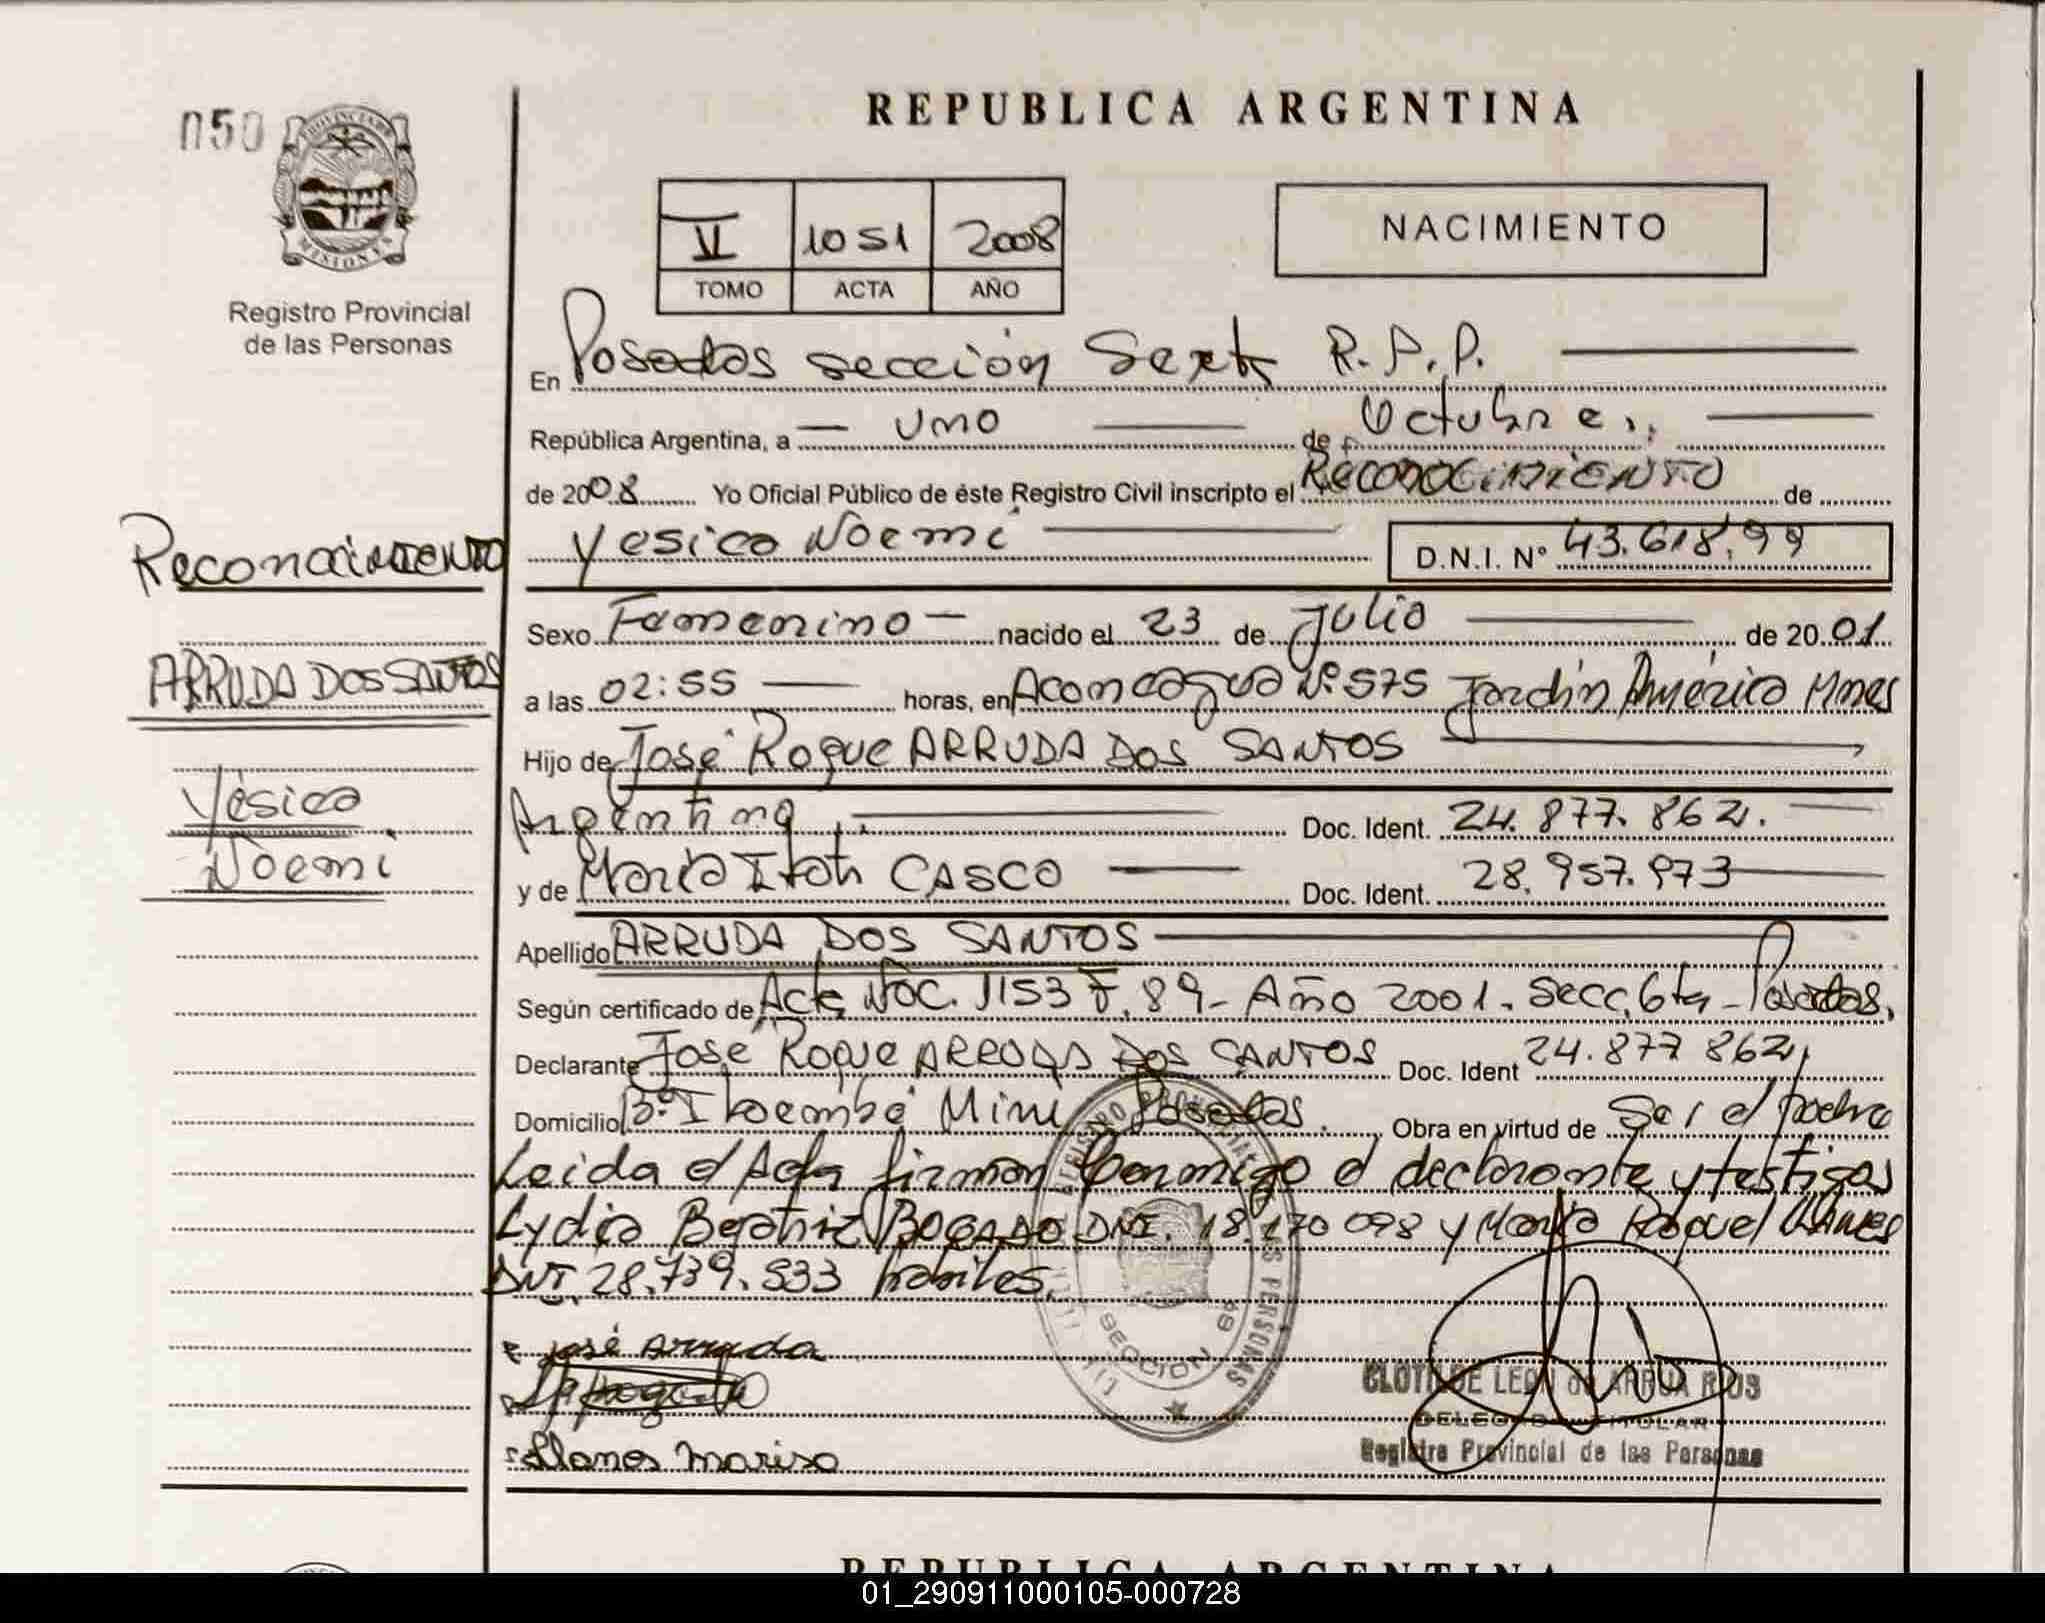 REPUBLICA ARGENTINA
050
PROVINCIA DE
MISIONES
Registro Provincial
de las Personas
VI 1051 2008
TOMO ACTA AÑO
NACIMIENTO
En Posadas sección Sexta R.P.P.
República Argentina, a uno de Octubre
de 2008 Yo Oficial Público de éste Registro Civil inscripto el RECONOCIMIENTO de
Yesica Noemí D.N.I. Nº 43.618.99
Reconocimiento
Sexo Femenino nacido el 23 de Julio de 2001
ARRUDA DOS SANTOS
a las 02:55 horas, en Aconcagua Nº 575 Jardín América Mnes
Hijo de José Roque ARRUDA DOS SANTOS
Yésica
Argentina Doc. Ident. 24.877.862.
Noemi
y de María Itatí CASCO Doc. Ident. 28.957.973
Apellido ARRUDA DOS SANTOS
Según certificado de Acta Nac. 1153 F. 89 - Año 2001. Secc. 6ta - Posadas.
Declarante José Roque ARRUDA DOS SANTOS Doc. Ident 24.877 862
Domicilio Bº Itaembé Miní Posadas. Obra en virtud de Ser el padre
Leida el Acta firman conmigo el declarante y testigos
Lydia Beatriz BOGADO DNI. 18.170 098 y María Raquel LLANES
DNI. 28.739.533 habiles.
José Arruda
Llanos Marisa
SECCION 6ª
CLOTILDE LEON de ARRUA RIOS
DELEGADA TITULAR
Registro Provincial de las Personas
REPUBLICA ARGENTINA
01_290911000105-000728